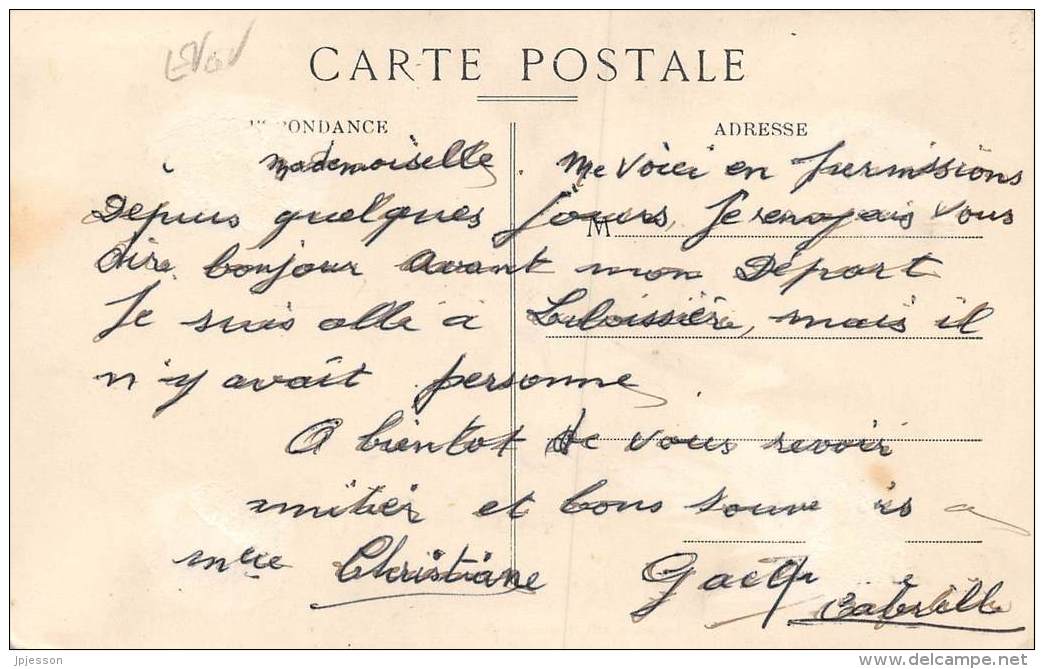 CARTE POSTALE
PONDANCE
ADRESSE
Mademoiselle, Me Voici en permissions
Depuis quelques jours, Je venais Vous
M
dire bonjour avant mon Départ
Je suis allé à Laloissière, mais il
n'y avait personne
A bientot de vous revoir
amitiés et bons souve is a
mlle Christiane Gaëlle
jpjesson
www.delcampe.net